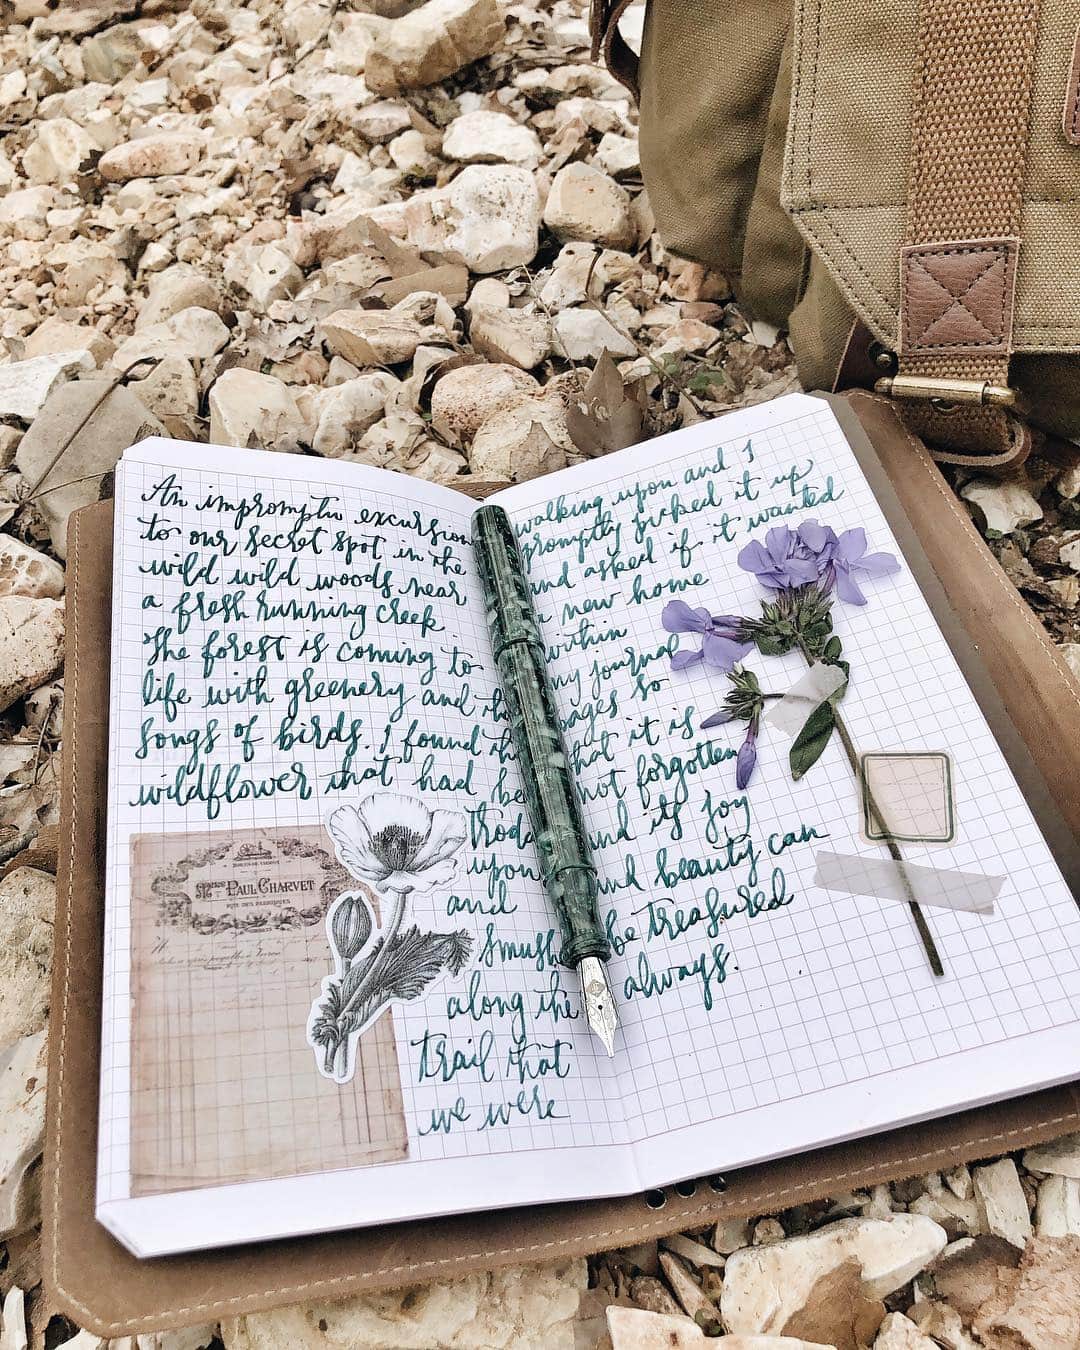 An impromptu excursion
to our secret spot in the
wild wild woods near
a fresh running creek.
The forest is coming to
life with greenery and the
songs of birds. I found th
wildflower that had be
trod
upon
and
smush
along the
trail that
we were
PAUL CHARVET
walking upon and I
promptly picked it up
and asked if it wanted
a new home
within
my journal
pages so
that it is
not forgotten
and its joy
and beauty can
be treasured
always.